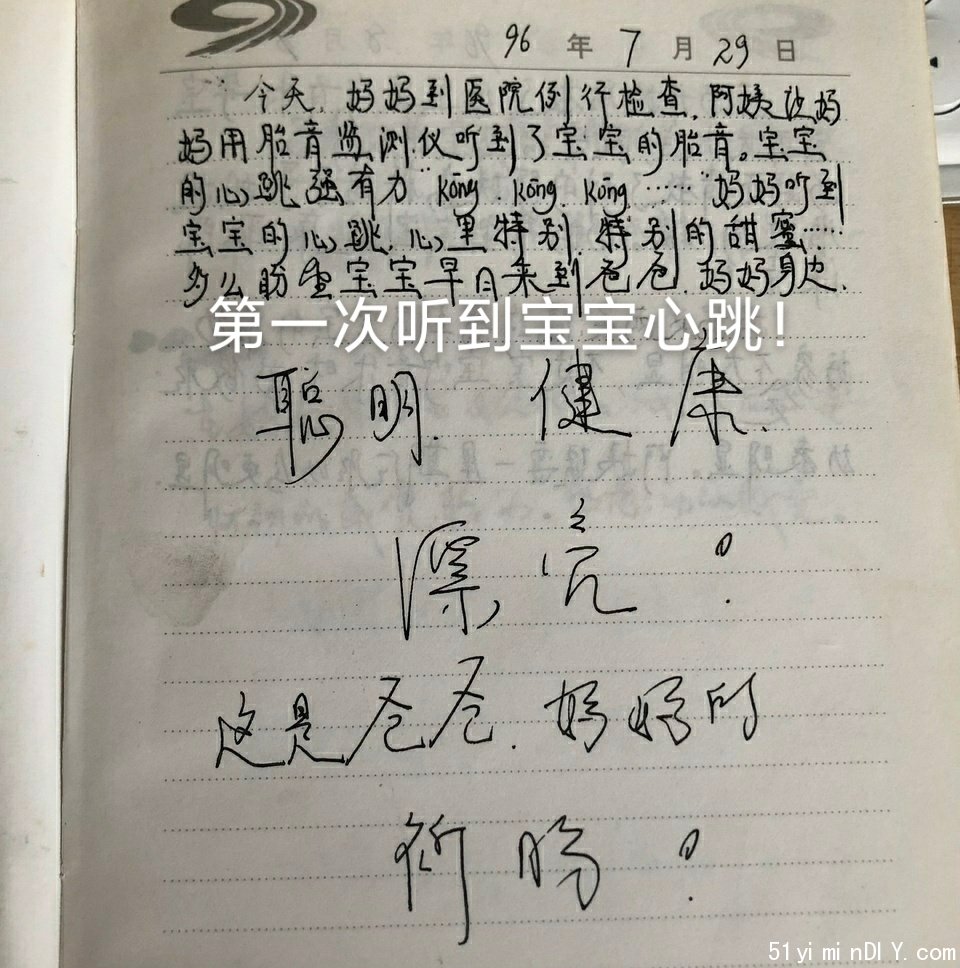 96 年 7 月 29 日
今天,妈妈到医院例行检查,阿姨让妈
妈用胎音监测仪听到了宝宝的胎音。宝宝
的心跳强有力"kōng、kōng、kōng……"妈妈听到
宝宝的心跳,心里特别、特别的甜蜜……
多么盼望宝宝早日来到爸爸、妈妈身边.
第一次听到宝宝心跳！
聪明、健康、
漂亮!
这是爸爸、妈妈的
祈盼!
51yiminDIY.com